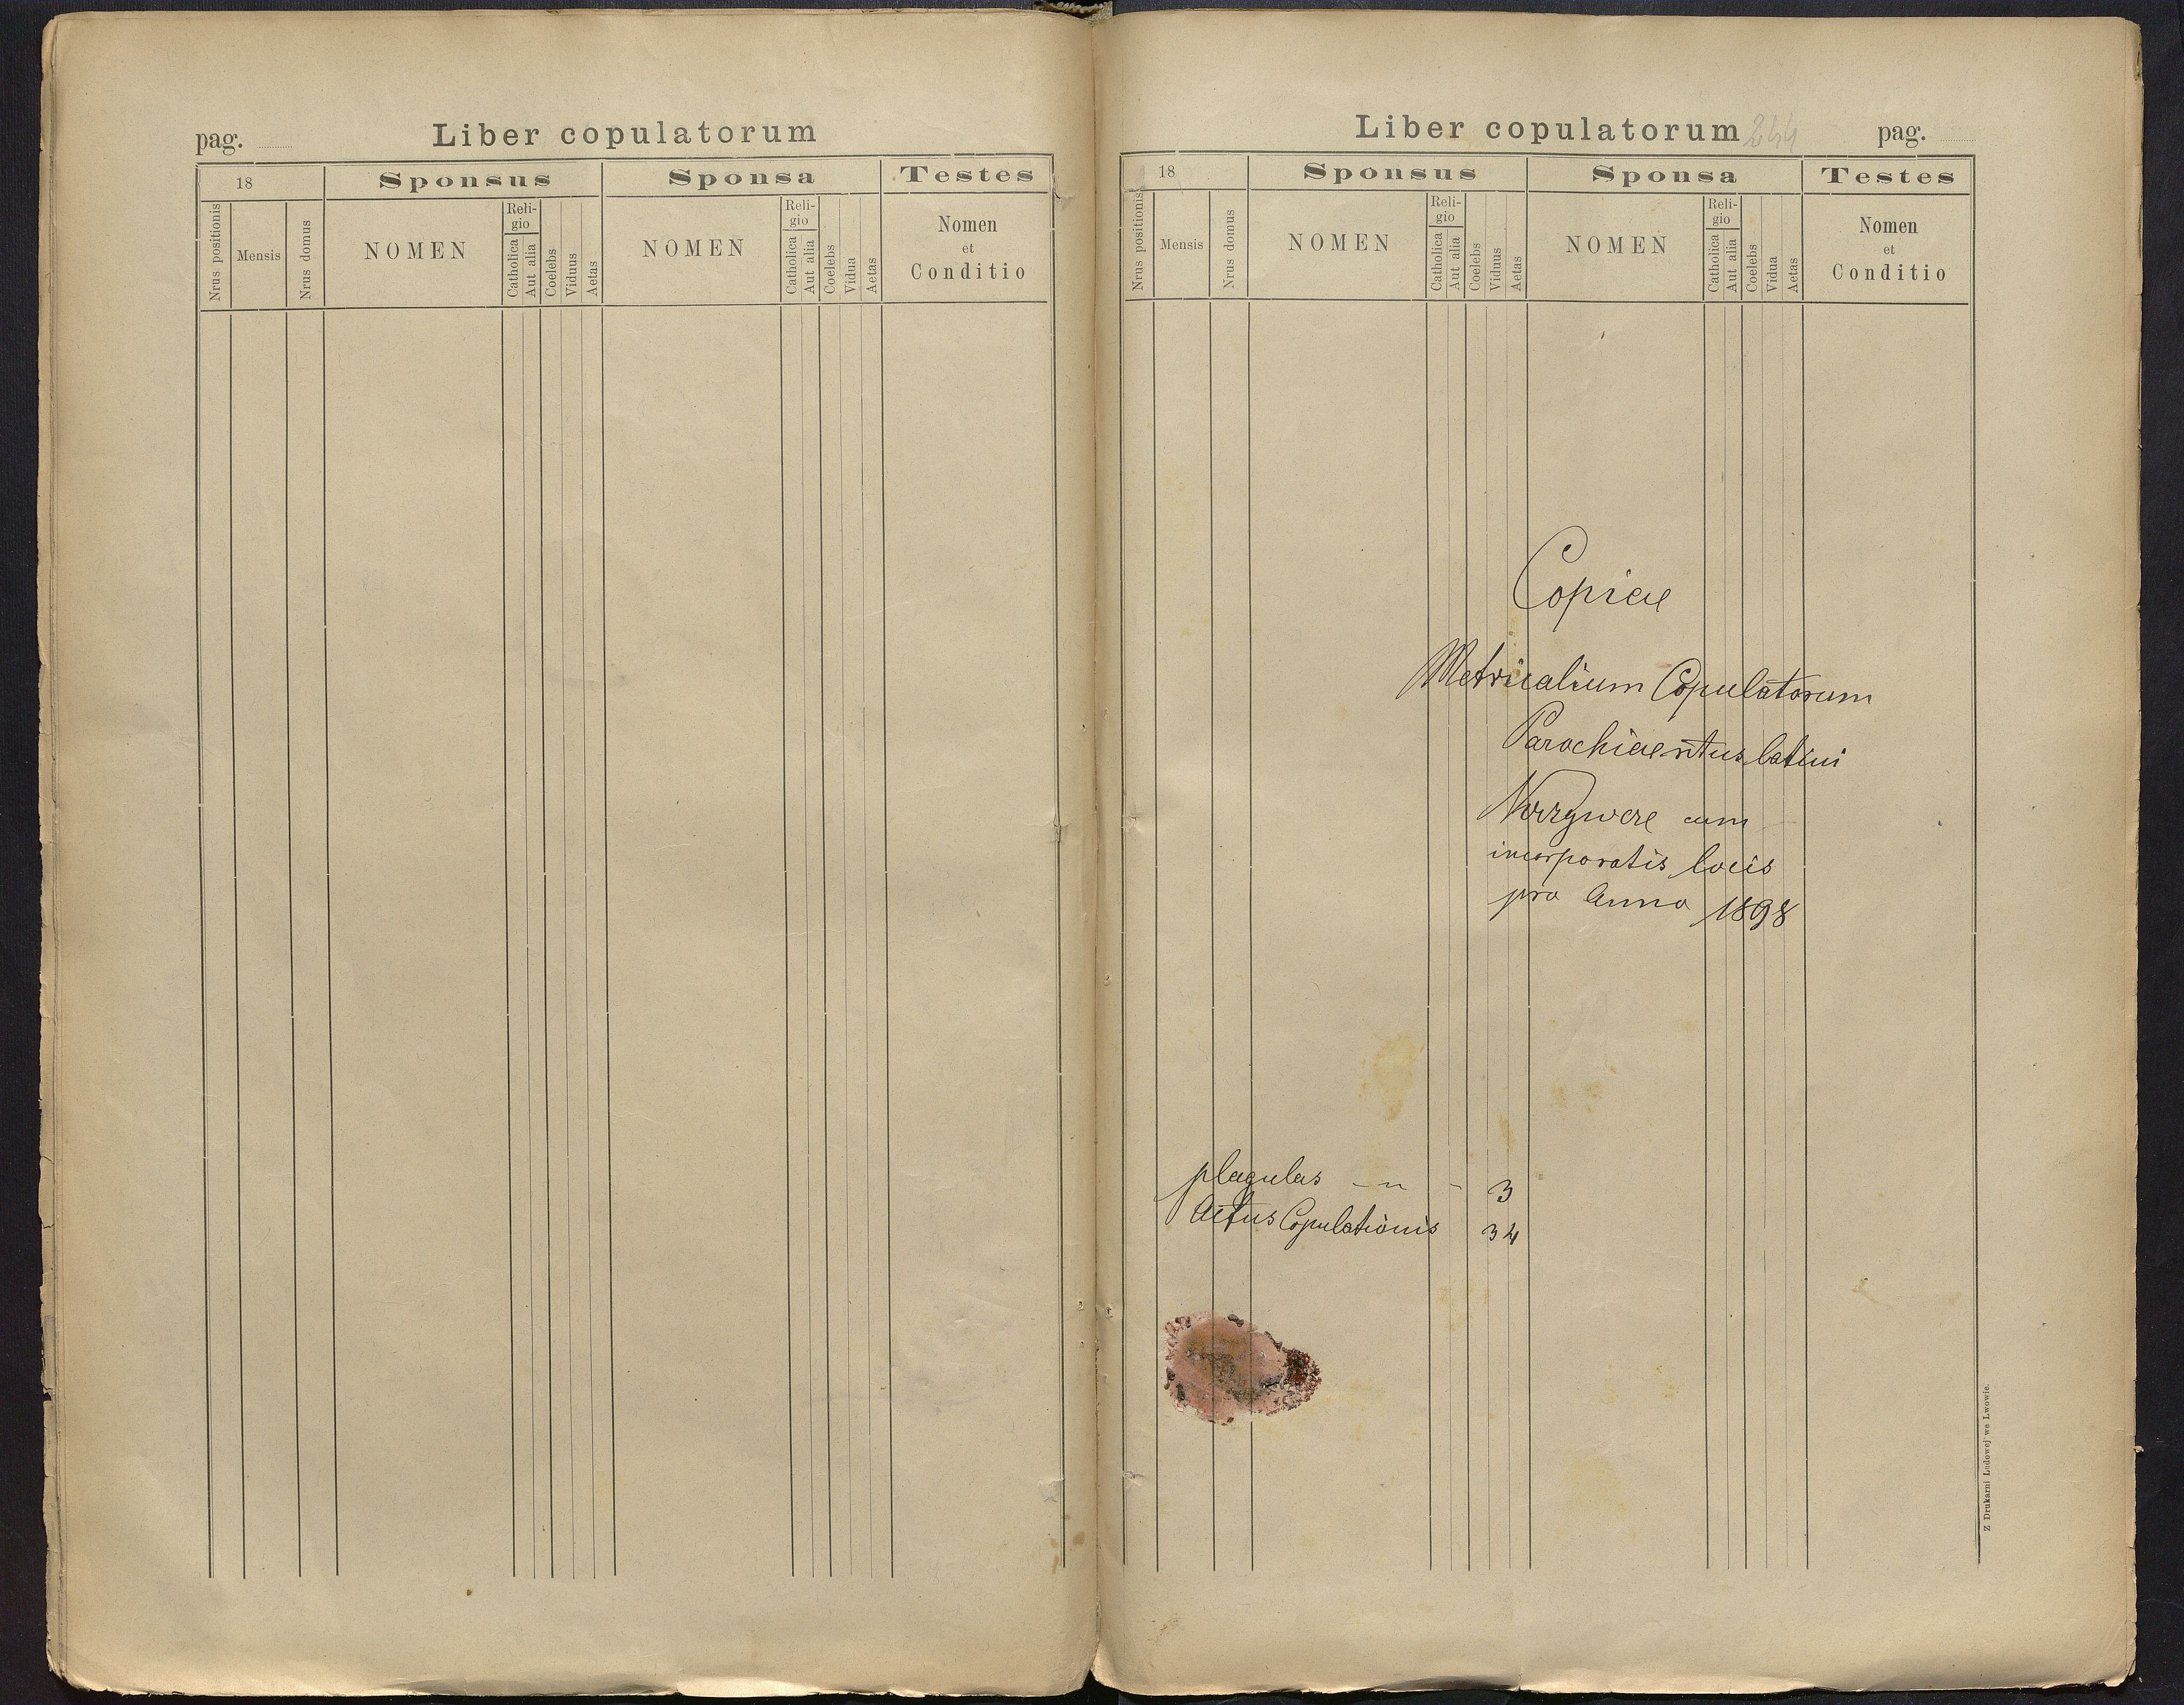 pag.
Liber copulatorum
18
Sponsus
Sponsa
Testes
Nrus positionis
Mensis
Nrus domus
NOMEN
Religio
Catholica
Aut alia
Coelebs
Viduus
Aetas
NOMEN
Religio
Catholica
Aut alia
Coelebs
Vidua
Aetas
Nomen
et
Conditio
Liber copulatorum
244
pag.
18
Sponsus
Sponsa
Testes
Nrus positionis
Mensis
Nrus domus
NOMEN
Religio
Catholica
Aut alia
Coelebs
Viduus
Aetas
NOMEN
Religio
Catholica
Aut alia
Coelebs
Vidua
Aetas
Nomen
et
Conditio
Copiae
Metricalium Copulatorum
Parochiae ritus latini
cum
incorporatis locis
pro Anno 1898
plagulas - " - 3
Actus Copulationis 34
Z Drukarni Ludowej we Lwowie.